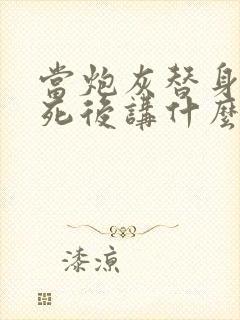 當炮灰替身
死後講什麼
漆涼